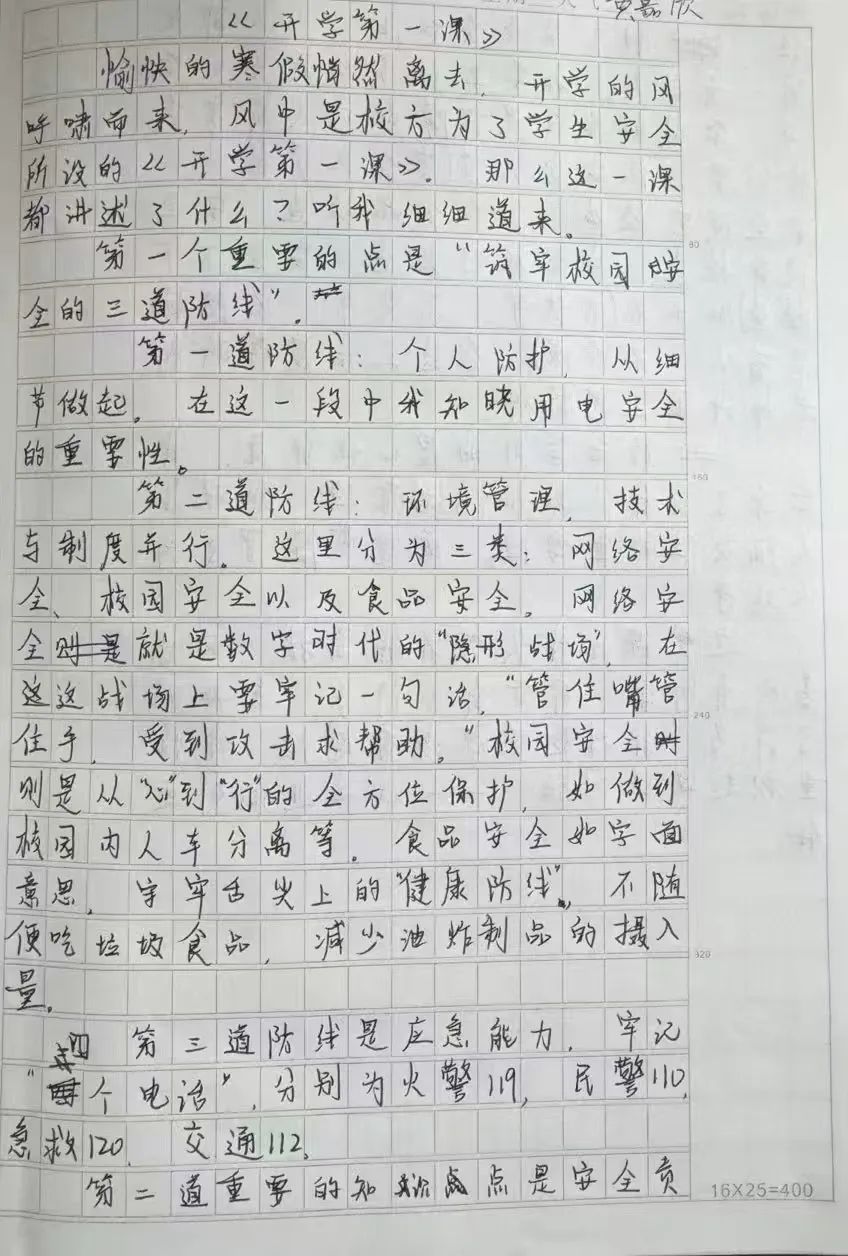 黄嘉欣
《开学第一课》
愉快的寒假悄然离去，开学的风
呼啸而来，风中是校方为了学生安全
所设的《开学第一课》。那么这一课
都讲述了什么？听我细细道来。
80
第一个重要的点是“筑牢校园安
全的三道防线”。
第一道防线：个人防护，从细
节做起。在这一段中我知晓用电安全
的重要性。
160
第二道防线：环境管理，技术
与制度并行。这里分为三类：网络安
全、校园安全以及食品安全。网络安
全就是数字时代的“隐形战场”，在
这这战场上要牢记一句话，“管住嘴管
240
住手，受到攻击求帮助。”校园安全
则是从“心”到“行”的全方位保护，如做到
校园内人车分离等。食品安全如字面
意思，守牢舌尖上的“健康防线”，不随
便吃垃圾食品，减少油炸制品的摄入
320
量。
第三道防线是应急能力，牢记
“四个电话”，分别为火警119，民警110，
急救120，交通112。
第二道重要的知识点是安全责
16X25=400